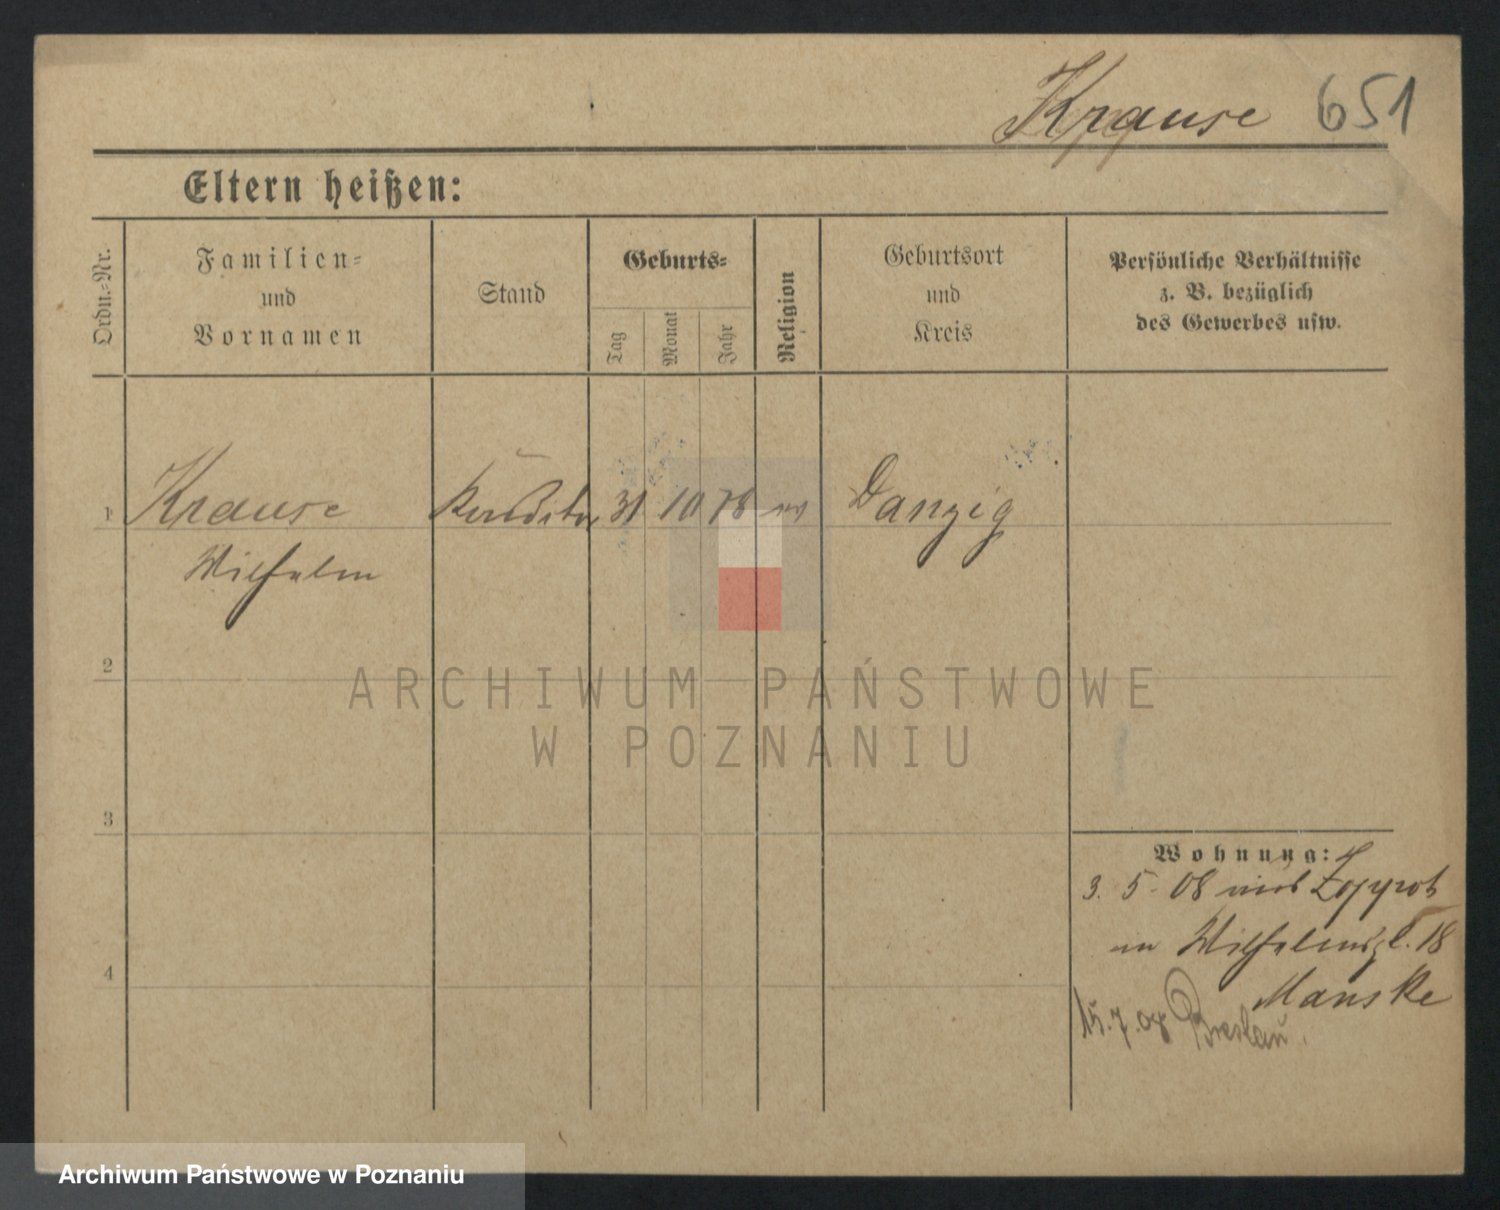 Krause 651
Eltern heißen:
Ordn.-Nr.
Familien-
und
Vornamen
Stand
Geburts-
Tag
Monat
Jahr
Religion
Geburtsort
und
Kreis
Persönliche Verhältnisse
z. B. bezüglich
des Gewerbes usw.
1 Krause Konditor 31 10 78 ev Danzig
Wilhelm
2
3
4
Wohnung:
3. 5. 08 Zoppot
Wilhelmspl. 18
Manske
15.7.08 Breslau.
ARCHIWUM PAŃSTWOWE
W POZNANIU
Archiwum Państwowe w Poznaniu